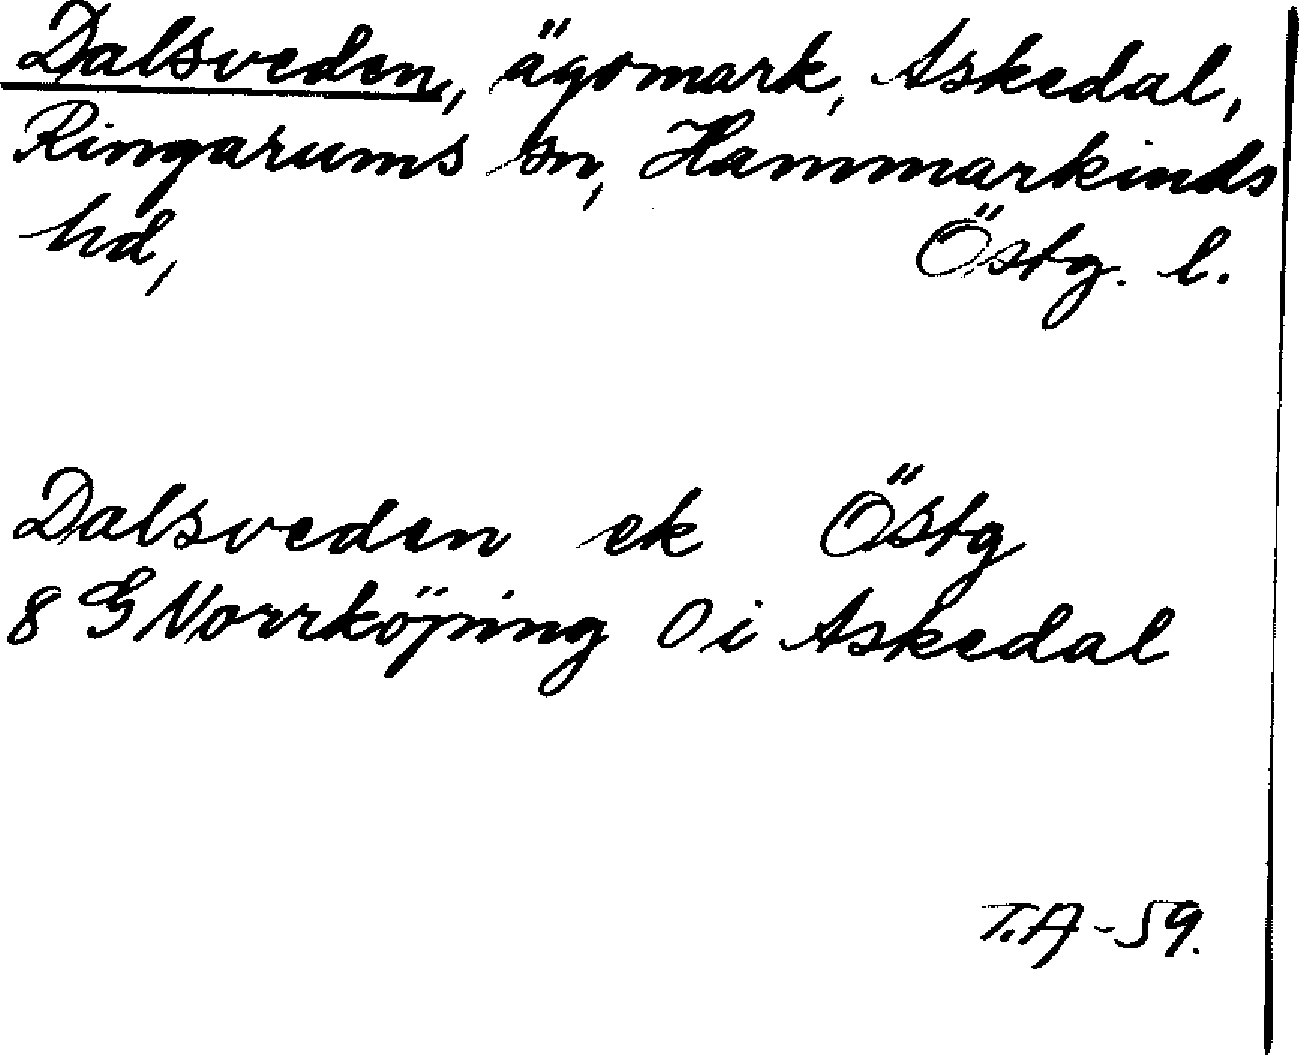 Dalsveden, ägomark, Askedal,
Ringarums sn, Hammarkinds
hd, Östg. l.
Dalsveden ek Östg
8 G Norrköping O i Askedal
T.A-59.